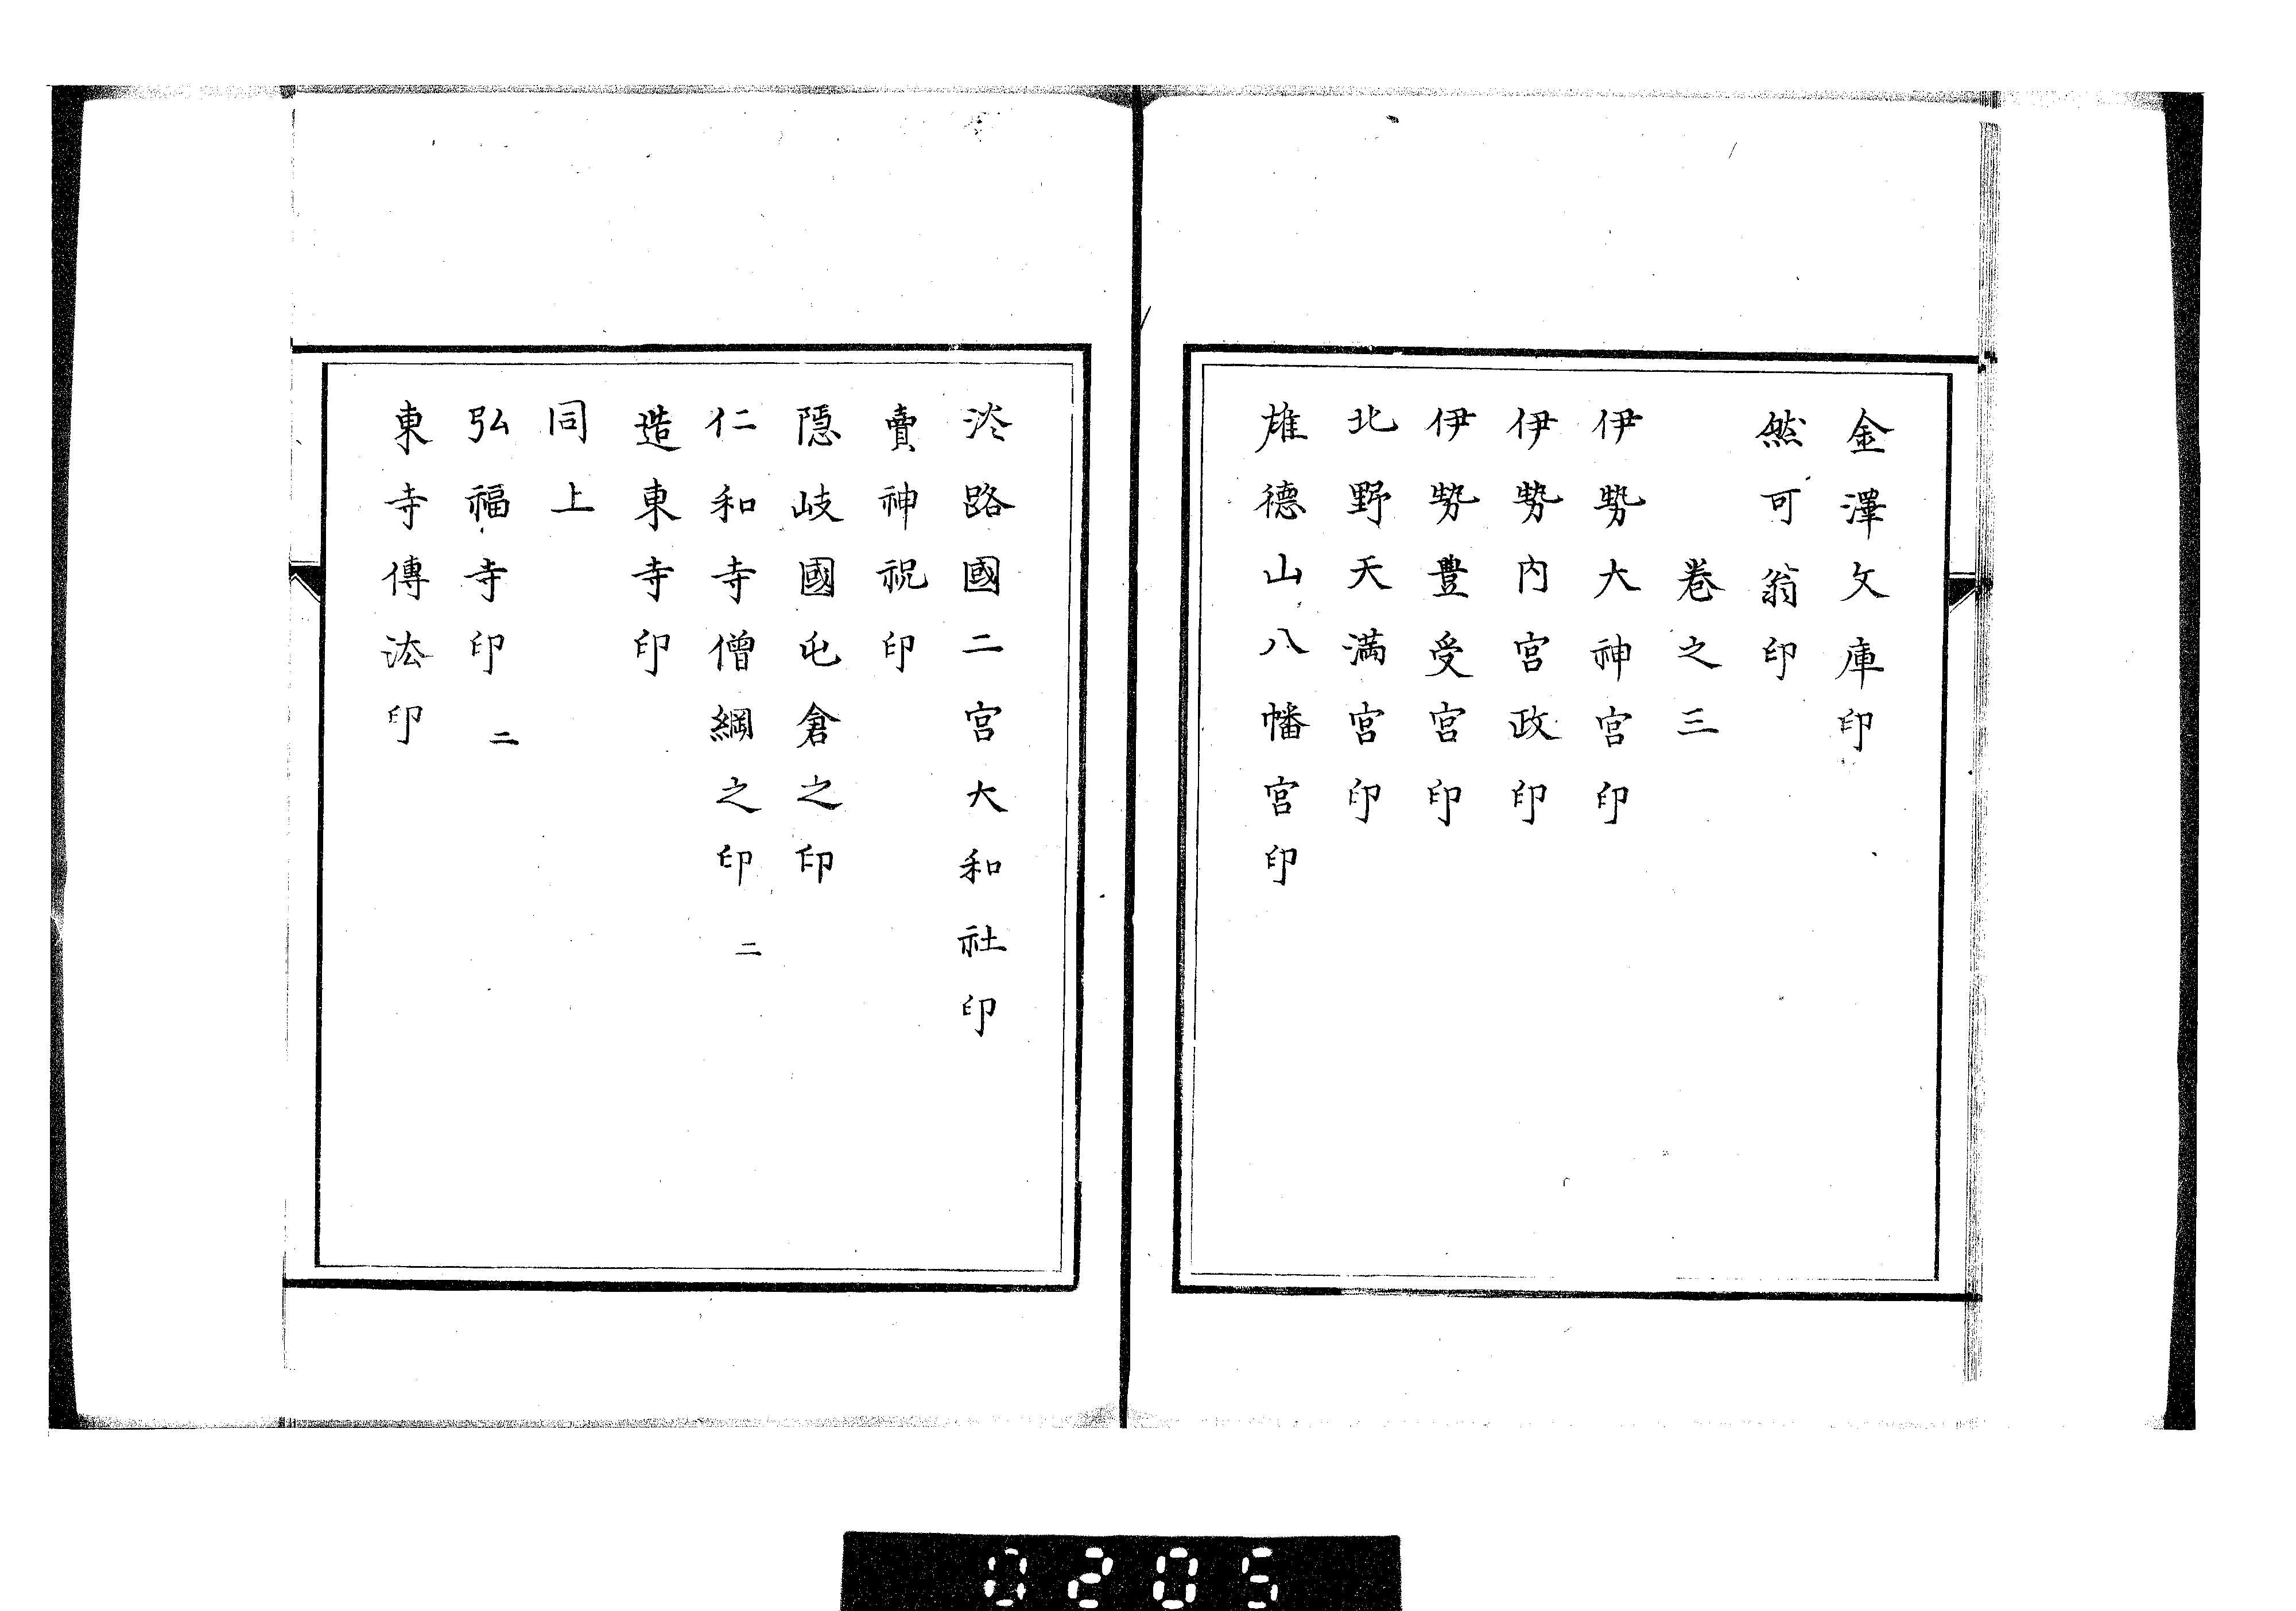 金澤文庫印
然可翁印
巻之三
伊勢大神宮印
伊勢内宮政印
伊勢豊受宮印
北野天満宮印
雄德山八幡宮印
淡路國二宮大和社印
賣神祝印
隠岐國屯倉之印
仁和寺僧綱之印 二
造東寺印
同上
弘福寺印 二
東寺傳法印
0205